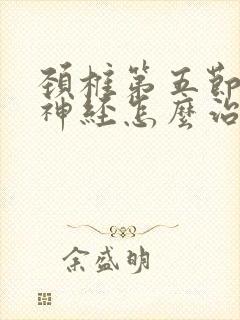 頚椎第五節
神経怎麼治
余盛明